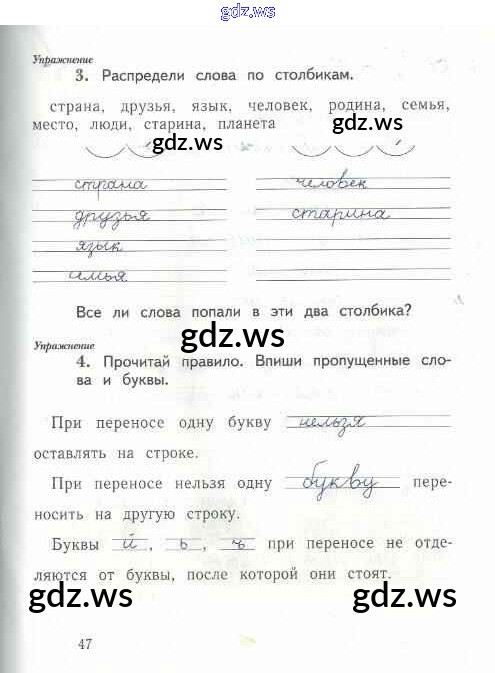 gdz.ws
Упражнение
3. Распредели слова по столбикам.
страна, друзья, язык, человек, родина, семья,
место, люди, старина, планета
gdz.ws
gdz.ws
страна
человек
друзья
старина
язык
семья
Все ли слова попали в эти два столбика?
gdz.ws
Упражнение
4. Прочитай правило. Впиши пропущенные сло-
ва и буквы.
При переносе одну букву нельзя
оставлять на строке.
При переносе нельзя одну букву пере-
носить на другую строку.
Буквы й, ь, ъ при переносе не отде-
ляются от буквы, после которой они стоят.
gdz.ws
gdz.ws
47